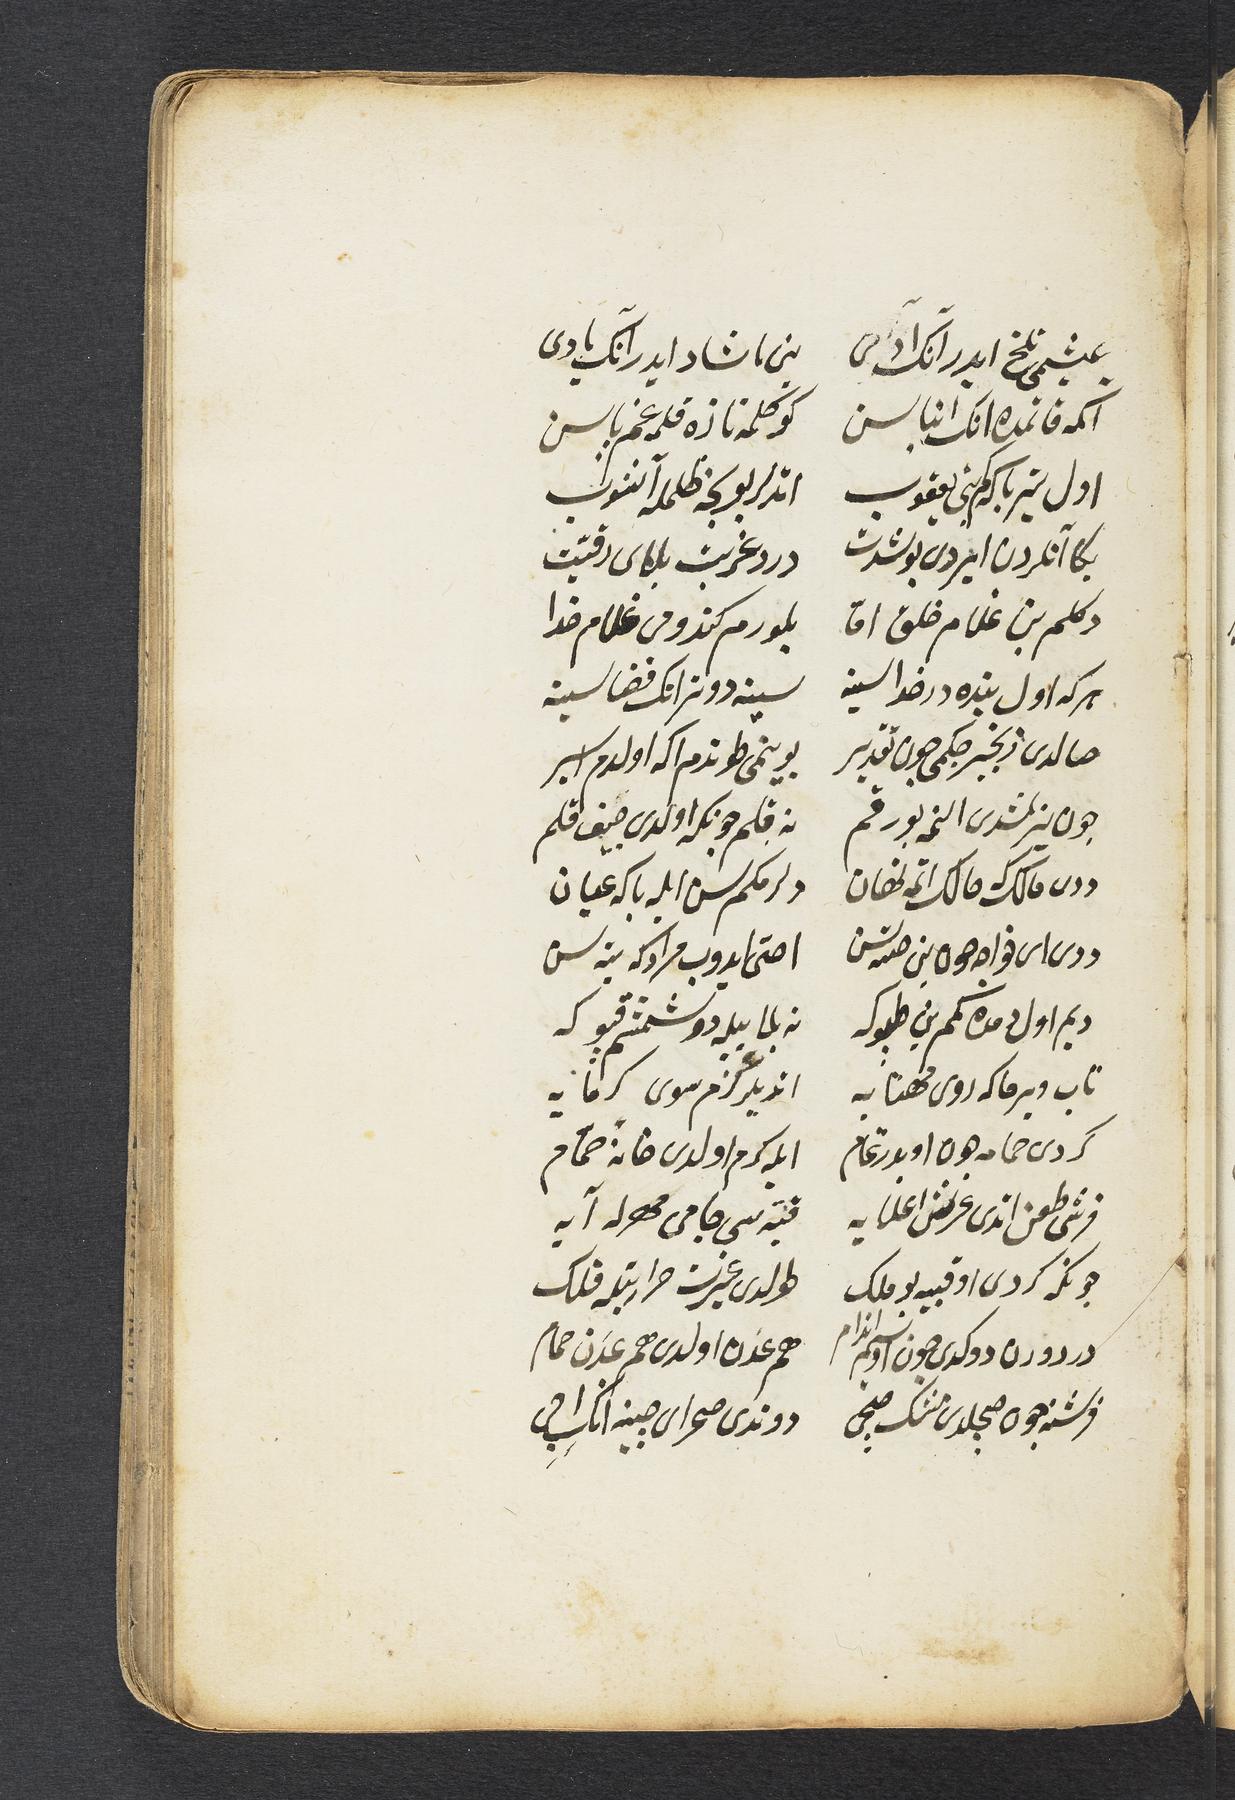 عیشمی تلخ ایدر آنک آدی بنی ناشاد ایدر آنک یادی
اکمه قاتمده انک انباسن کوکلمه تازه قلمه غم یاسن
اول یتیر باکه کم بنی یعقوب اتدلر بویجه ظلمله آشوب
بکا آنلردن ایردی بو شدت درد غربت بلای رقیت
دکلم بن غلام خلق اقا بلورم کندومی غلام خدا
هر که اول بنده در خداسینه سینه دوتر انک قضاسینه
صالدی زنجیر حکمی چون تقدیر بوینمی طوتدم اکه اولدم اسیر
چون یزلمشدی النمه بو رقم نه قلم چونکه اولدی جف قلم
ددی مالک که مالک اتمه نهان دلرمکم سن ایله باکه عیان
ددی ای خواجه چون بنی صته سن احتی ایدوب مرادکه یته سن
دیم اول دمده کم بنی طپوکه نه بلا بیله دوشمشم قپوکه
تاب ویر ماکه روی مهتابه اندیلر عزم سوی کرمابه
کردی حمامه چون او بدر تمام ایله کرم اولدی خانهٔ حمام
فرشی طعن اتدی عرش اعلایه قبه سی جامی مهرله آیه
چونکه کردی او قبیه بو ملک طولدی غیرت حرارتیله فلک
در دورن دوکدی چون او سیم اندام هم عدن اولدی هم عدن حمام
فرشنه چون صچلدی مشک صچی دوندی صحرای چینه انک ایچی